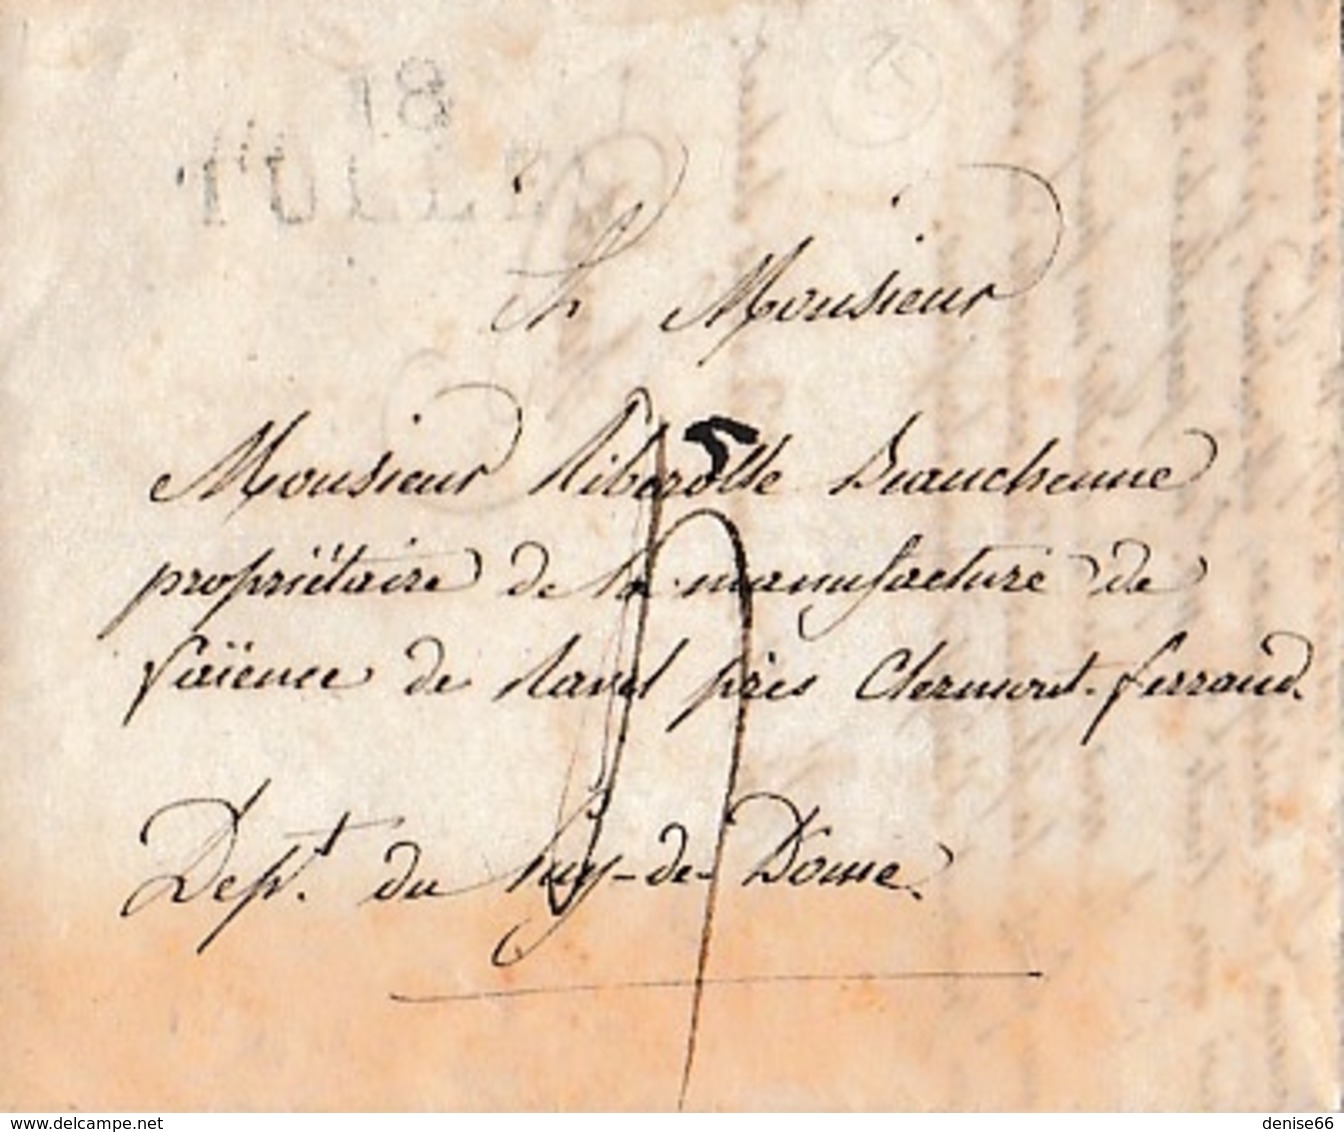 18
TULLE
A Monsieur
Monsieur Riberolle Beauchenne
propriétaire de la manufacture de
faïence de Ravel près Clermont-ferrand.
Dept. du Puy-de-Dome.
delcampe.net
denise66